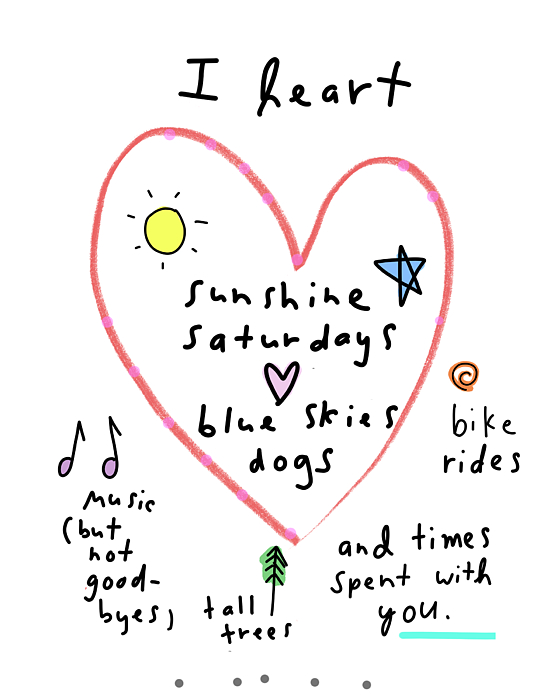 I heart
sunshine
saturdays
blue skies
dogs
bike
rides
music
(but
not
good-
byes)
tall
trees
and times
spent with
you.